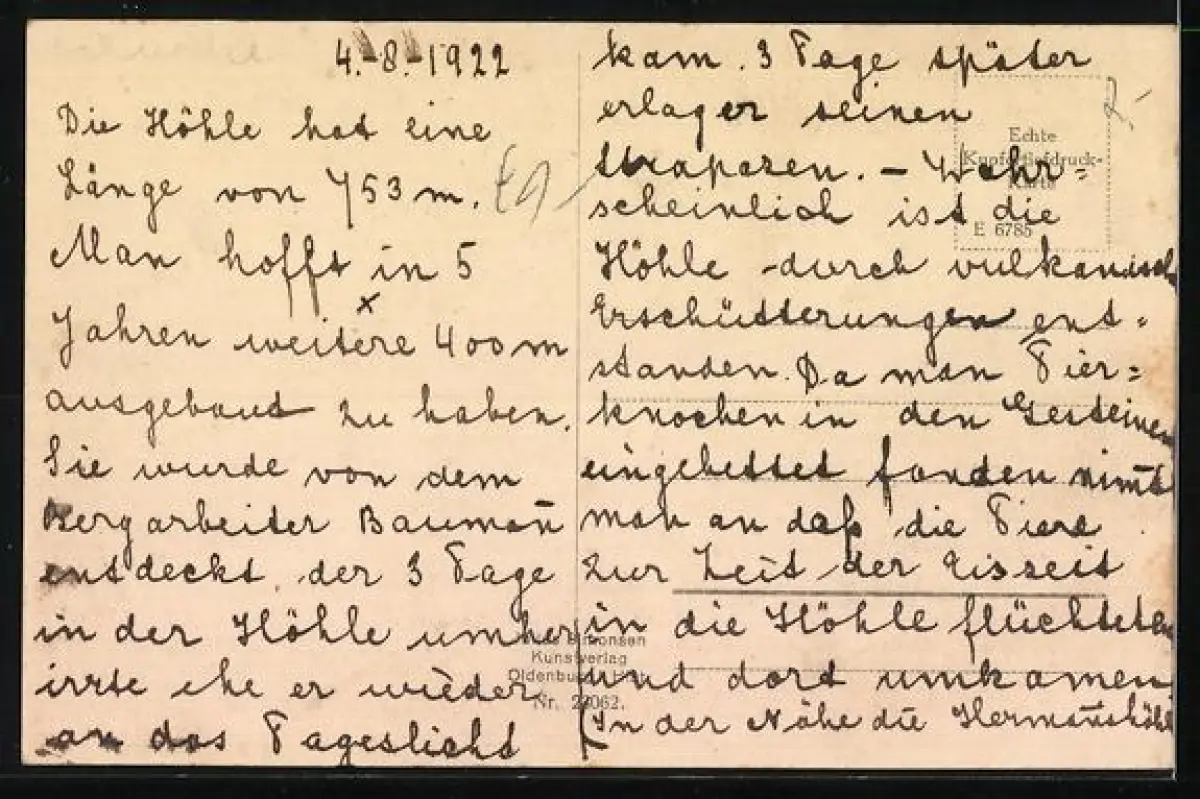 4.-8.-1922
Die Höhle hat eine
Länge von 753 m.
Man hofft in 5
Jahren weitere 400 m
ausgebaut zu haben.
Sie wurde von dem
Bergarbeiter Bauman̄
entdeckt, der 3 Tage
in der Höhle umher
irrte ehe er wieder
an das Tageslicht
kam. 3 Tage später
erlag er seinen
Strapazen. – Wahr=
scheinlich ist die
Höhle durch vulkanisch
Erschütterungen ent=
standen. Da man Tier=
knochen in den Gesteinen
eingebettet fanden nim̄t
man an daß die Tiere
zur Zeit der Eiszeit
in die Höhle flüchteten
und dort umkamen
(In der Nähe die Herman̄shöhle
Echte
Kupfertiefdruck-
Karte
E 6785
Simonsen
Kunstverlag
Oldenburg
Nr. 22062.